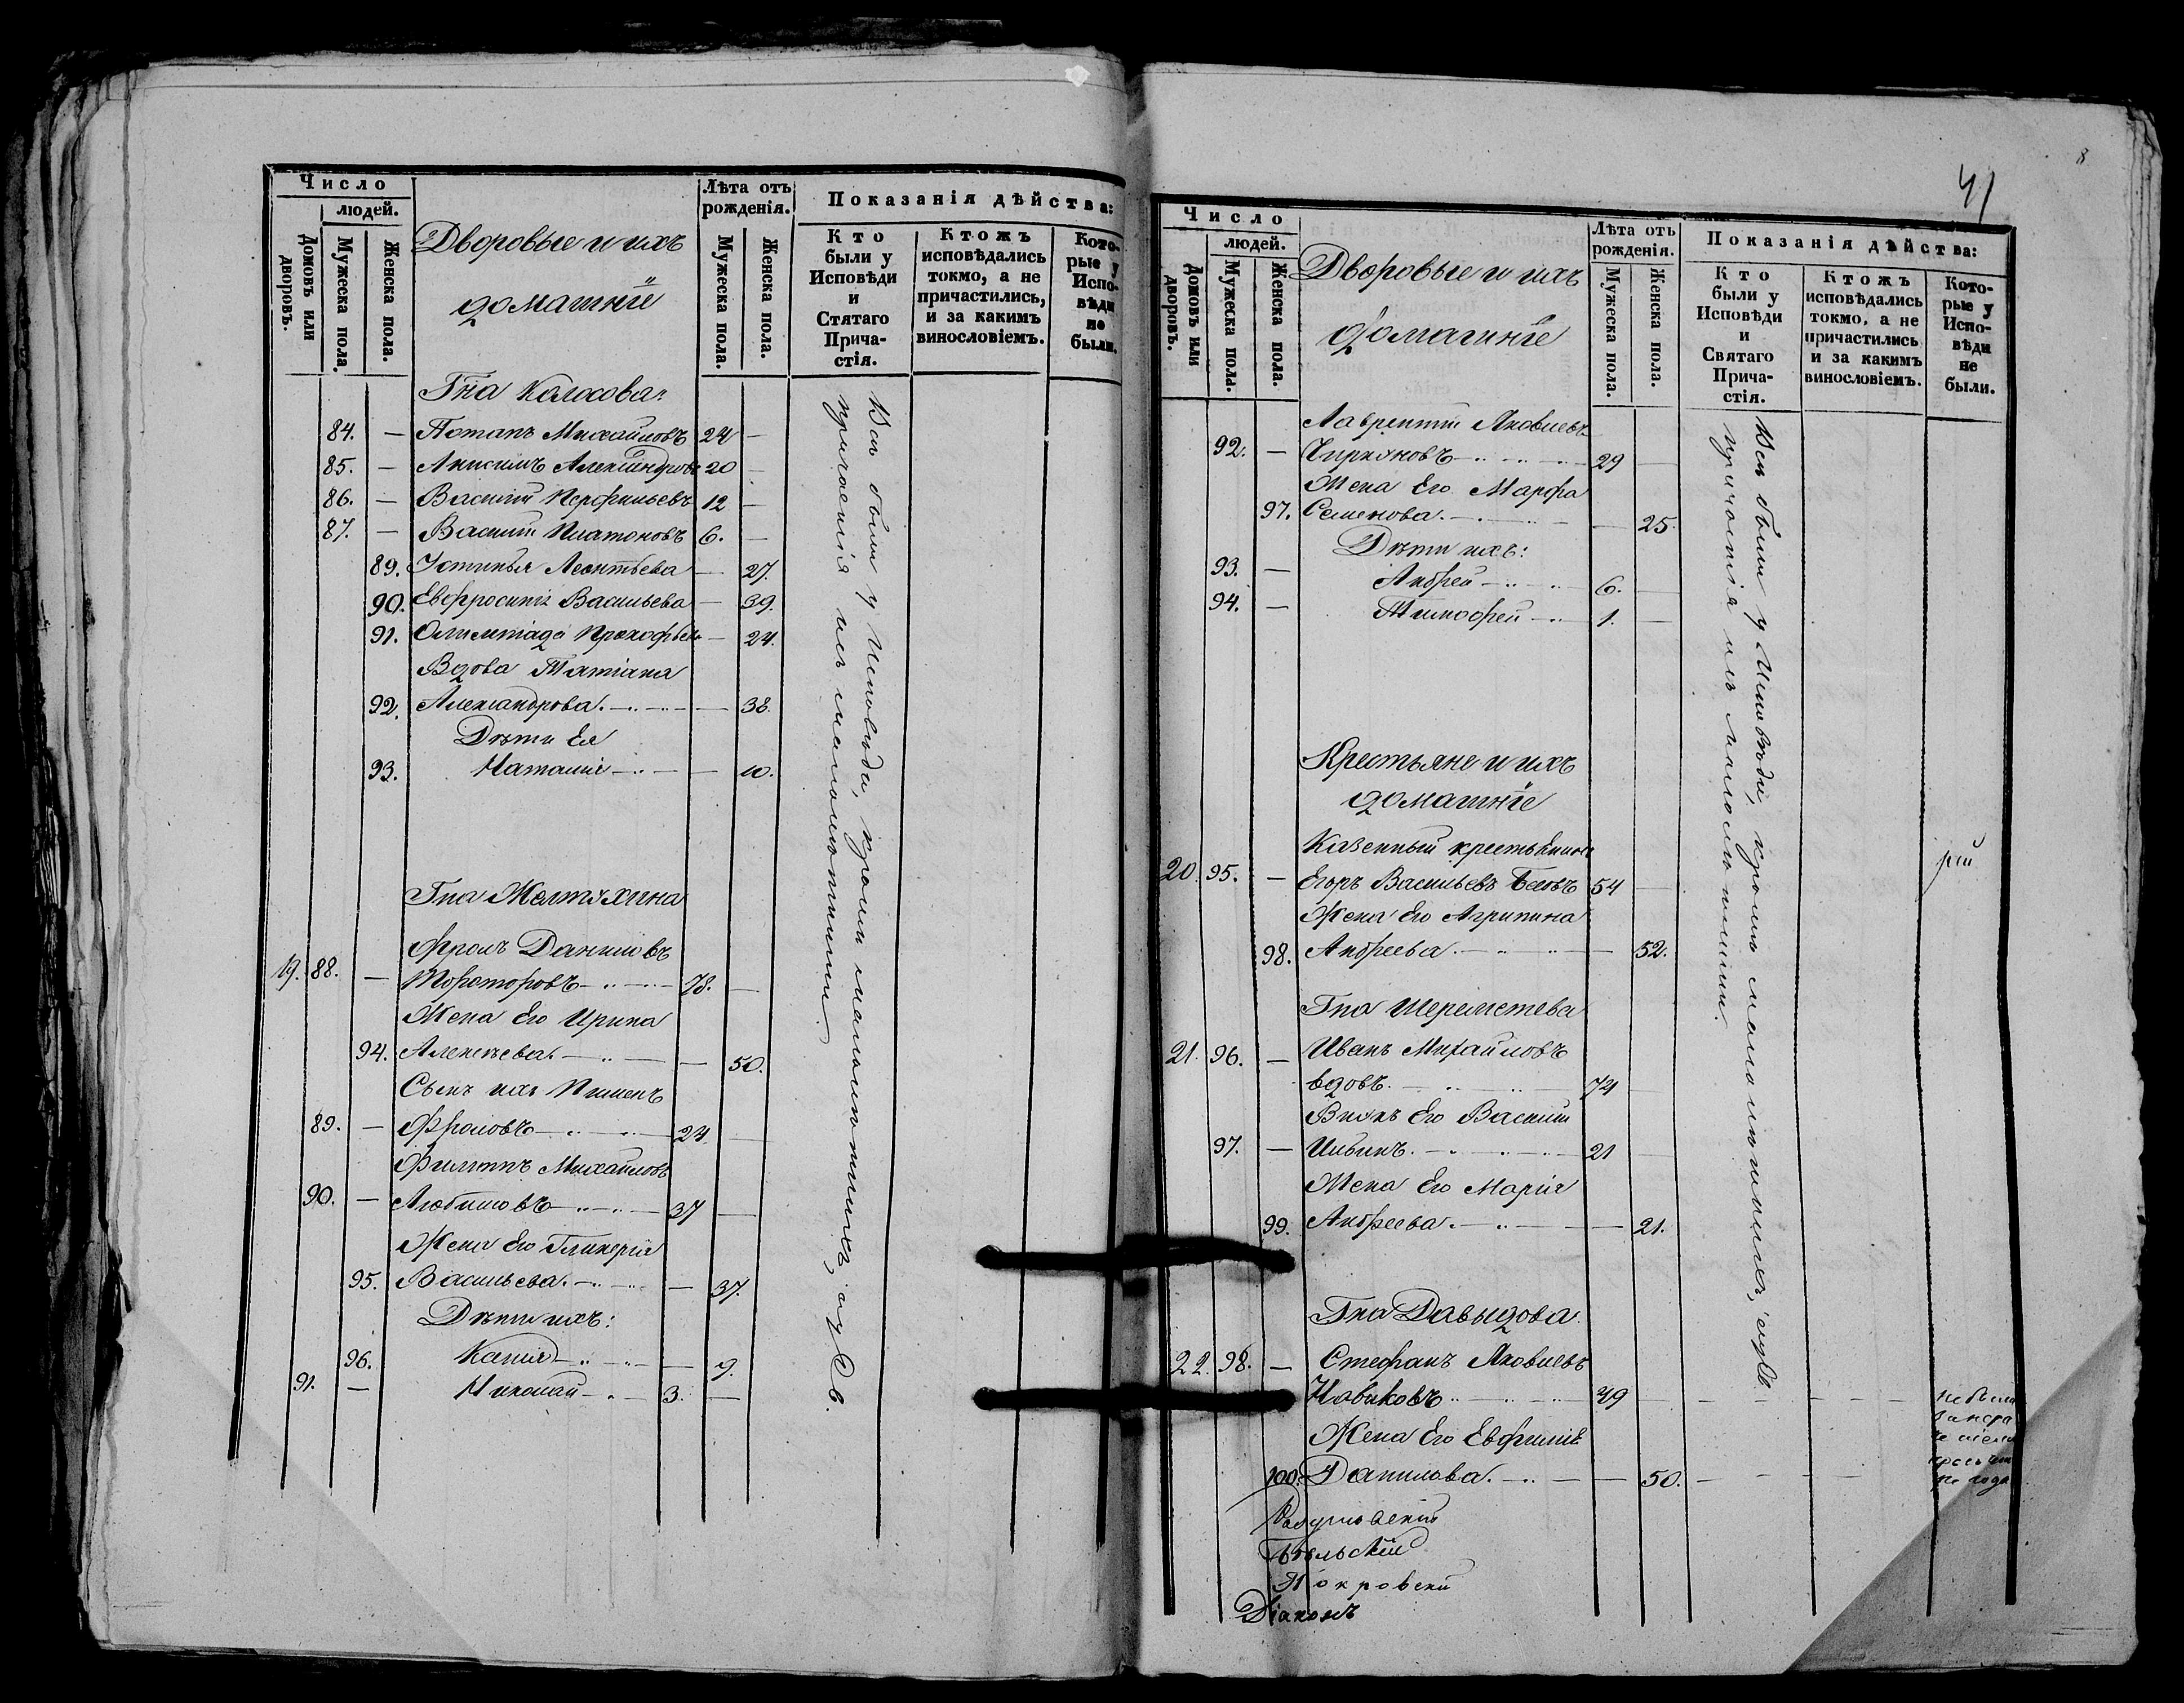 Число
людей.
Домовъ или дворовъ.
Мужеска пола.
Женска пола.
Дворовые и ихъ
домашніе
Лѣта отъ
рожденія.
Мужеска пола.
Женска пола.
Показанія дѣйства:
Кто
были у
Исповѣди
и
Стятаго
Прича-
стія.
Ктожъ
исповѣдались
токмо, а не
причастились,
и за какимъ
винословіемъ.
Кото-
рые у
Испо-
вѣди
не
были.
Гна Колосова
84. — Потапъ Михайловъ 24 —
85. — Анисимъ Александровъ 20 —
86. — Василій Перфильевъ 12 —
87. — Василій Платоновъ 6. —
89. Устинья Леонтьева — 27.
90. Евфросинія Васильева — 39.
91. Олимпіада Прокофьева — 24.
Вдова Татіана
92. Александрова. — 38.
Дѣти Ея
93. Наталія — 10.
Гна Желтухина
Фролъ Даниловъ
19. 88. — 78. —
Жена Его Ирина
94. Алексѣева. — 50.
Сынъ ихъ Пименъ
89. — Фроловъ — 24. —
Филиппъ Михайловъ
90. — Любимовъ — 37 —
Жена Его Гликерія
95. Васильева. — 37.
Дѣти ихъ:
96. — 9.
91. — Николай — 3. —
Всѣ были у Исповѣди, кромѣ малолѣтнихъ, а у Св.
причастія и съ малолѣтними.
41
Число
людей.
Домовъ или дворовъ.
Мужеска пола.
Женска пола.
Дворовые и ихъ
домашніе
Лѣта отъ
рожденія.
Мужеска пола.
Женска пола.
Показанія дѣйства:
Кто
были у
Исповѣди
и
Святаго
Прича-
стія.
Ктожъ
исповѣдались
токмо, а не
причастились
и за какимъ
винословіемъ.
Кото-
рые у
Испо-
вѣди
не
были.
Лаврентій Яковлевъ
92. — 29 —
Жена Его Марфа
97. Семенова. — 25.
Дѣти ихъ:
93. — Андрей — 6. —
94. — Тимофей — 1. —
Крестьяне и ихъ
домашніе
Казенный крестьянинъ
20. 95. — Егоръ Васильевъ Бѣловъ 54 —
Жена Его Агрипина
98. Андреева. — 52.
Гна Шереметева
21. 96. — Иванъ Михайловъ
вдовъ. — 74 —
Внукъ Его Василій
97. — Ильинъ. — 21 —
Жена Его Марія
99. Андреева. — 21.
Гна Давыдова
22. 98. — Стефанъ Яковлевъ
Новиковъ — 49 —
Жена Его Евфимія
100. Данилова. — 50.
Всѣ были у Исповѣди, кромѣ малолѣтнихъ, а у Св.
причастія и съ малолѣтними.
рій
не были
Покровски
Діаконъ